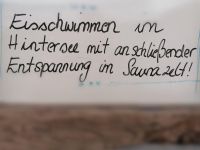 Eisschwimmen im
Hintersee mit anschließender
Entspannung im Saunazelt!